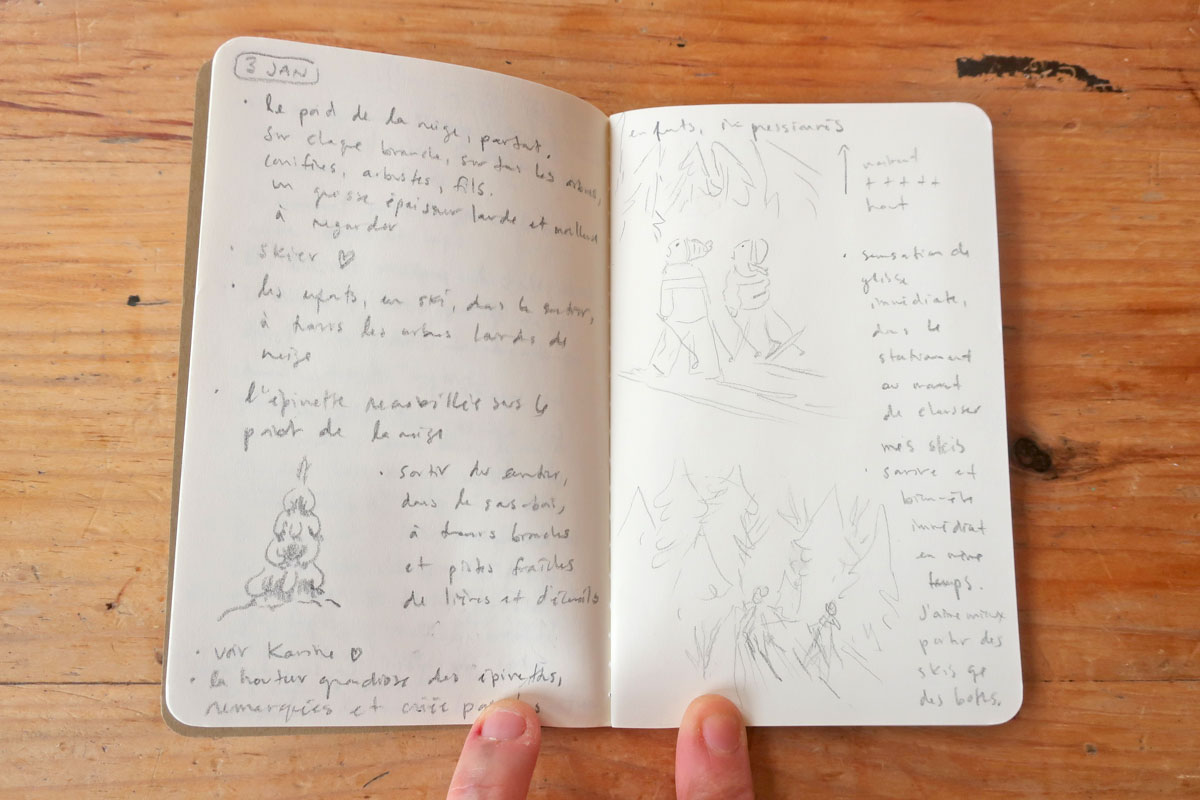 3 JAN
• Le poid de la neige, partout.
Sur chaque branche, sur tous les arbres,
conifères, arbustes, fils.
un grosse épaisseur lourde et moelleuse
à regarder
• skier ♡
• les enfants, en ski, dans le sentier,
à travers les arbres lourds de
neige
• l'épinette recroquevillée sous le
poid de la neige
• sortir du sentier,
dans le sous-bois,
à travers branches
et pistes fraîches
de lièvres et d'écureuils
• voir Karine ♡
• la hauteur grandiose des épinettes,
remarquées et criée par les
enfants, impressionnés
vraiment
+ + + + +
haut
• sensation de
glisse
immédiate,
dans le
stationnement
au moment
de chausser
mes skis
• sourire et
bien-être
immédiat
en même
temps.
J'aime mieux
porter des
skis que
des bottes.